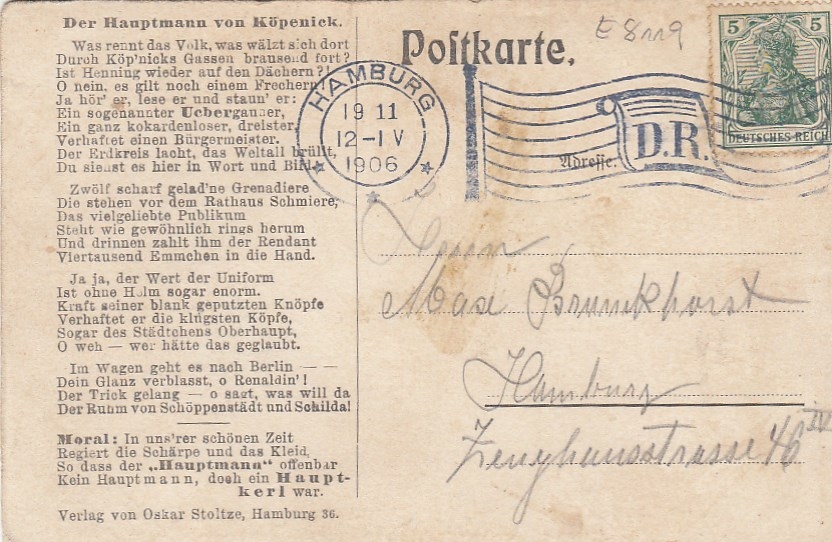 Der Hauptmann von Köpenick.
Was rennt das Volk, was wälzt sich dort
Durch Köp'nicks Gassen brausend fort?
Ist Henning wieder auf den Dächern?!
O nein, es gilt noch einem Frechern!
Ja hör' er, lese er und staun' er:
Ein sogenannter Uebergauner,
Ein ganz kokardenloser, dreister,
Verhaftet einen Bürgermeister.
Der Erdkreis lacht, das Weltall brüllt,
Du siehst es hier in Wort und Bild.
Zwölf scharf gelad'ne Grenadiere
Die stehen vor dem Rathaus Schmiere,
Das vielgeliebte Publikum
Steht wie gewöhnlich rings herum
Und drinnen zahlt ihm der Rendant
Viertausend Emmchen in die Hand.
Ja ja, der Wert der Uniform
Ist ohne Helm sogar enorm.
Kraft seiner blank geputzten Knöpfe
Verhaftet er die klügsten Köpfe,
Sogar des Städtchens Oberhaupt,
O weh — wer hätte das geglaubt.
Im Wagen geht es nach Berlin — —
Dein Glanz verblasst, o Renaldin'!
Der Trick gelang — o sagt, was will da
Der Ruhm von Schöppenstädt und Schilda!
Moral: In uns'rer schönen Zeit
Regiert die Schärpe und das Kleid,
So dass der „Hauptmann“ offenbar
Kein Hauptmann, doch ein Haupt-
kerl war.
Verlag von Oskar Stoltze, Hamburg 36.
Postkarte.
E 8119
HAMBURG
19 11
12-1 V
1906
D.R.
5 5
DEUTSCHES REICH
Adresse:
Herrn
Max Brunckhorst
Hamburg
Zeughausstrasse 46 IV